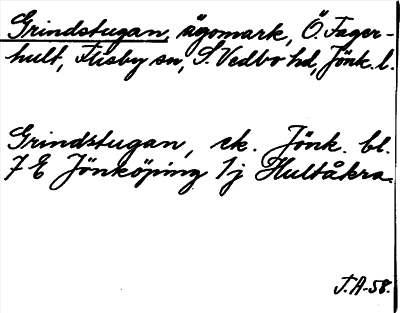 Grindstugan, ägomark, Ö. Fager-
hult, Flisby sn, S. Vedbo hd, Jönk. l.
Grindstugan, ek. Jönk. bl.
7 E Jönköping 1j Hultåkra.
J.A-58.